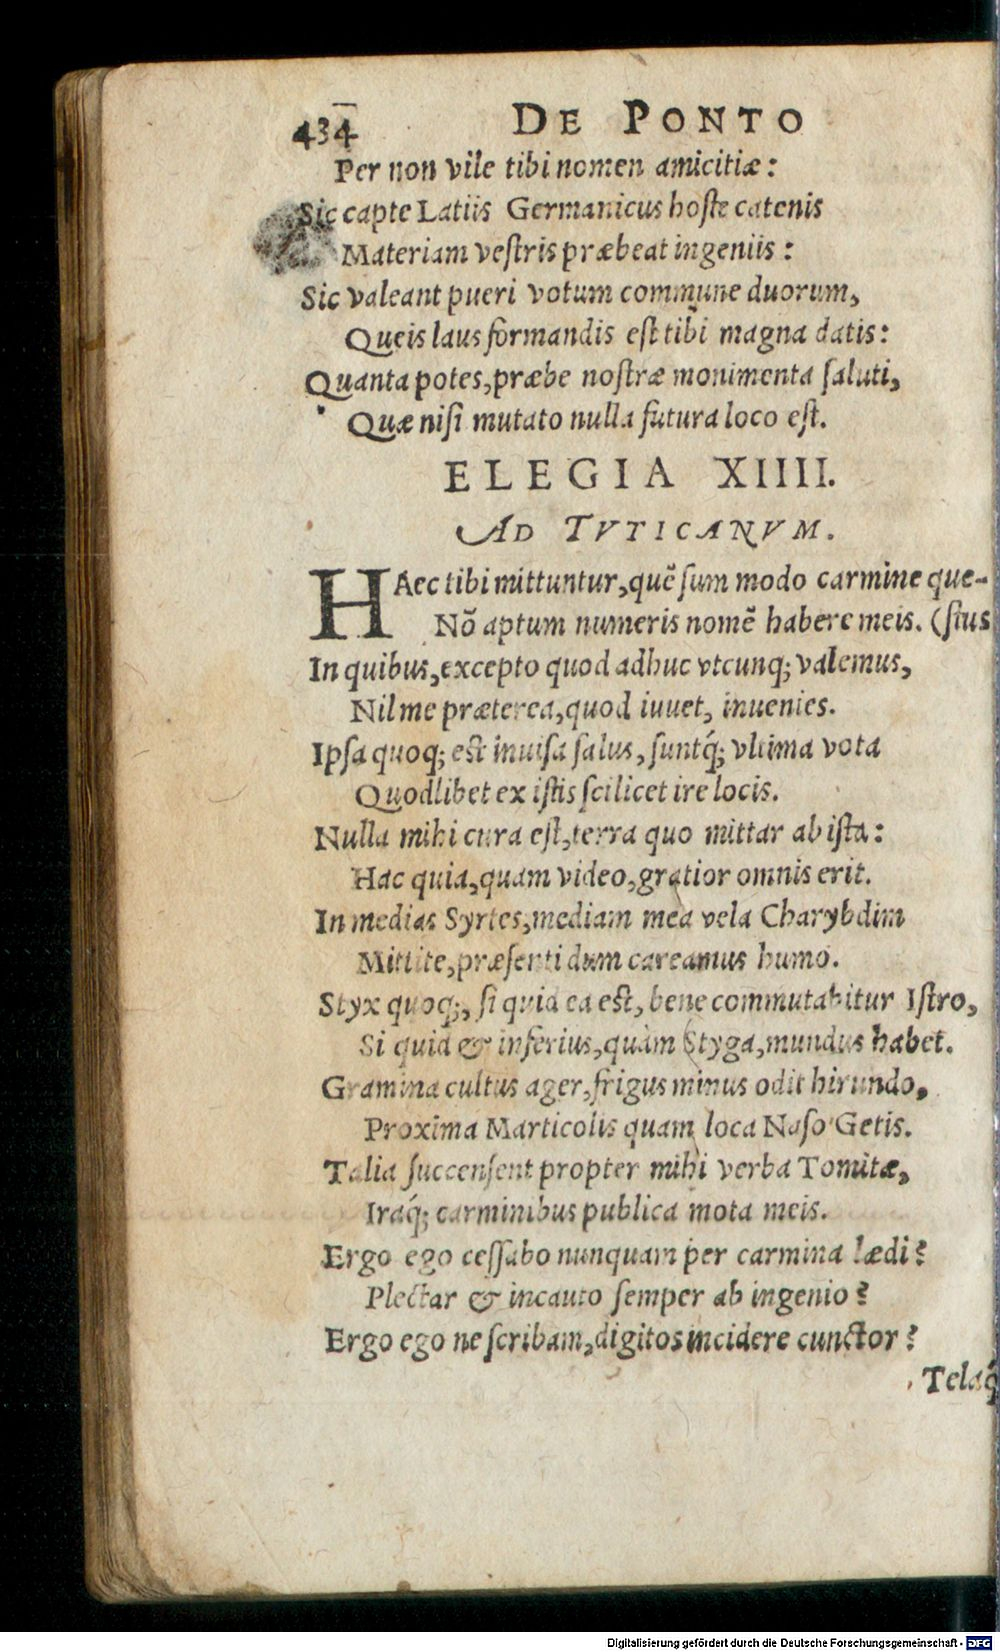 434 DE PONTO
Per non vile tibi nomen amicitiæ:
Sic capte Latiis Germanicus hoſte catenis
Materiam veſtris præbeat ingeniis:
Sic valeant pueri votum commune duorum,
Queis laus formandis eſt tibi magna datis:
Quanta potes, præbe noſtræ monimenta ſaluti,
Quæ niſi mutato nulla futura loco eſt.
ELEGIA XIIII.
AD TVTICANVM.
HAec tibi mittuntur, quẽ ſum modo carmine que-
Nõ aptum numeris nomẽ habere meis. (ſtus
In quibus, excepto quod adhuc vtcunq; valemus,
Nil me præterea, quod iuuet, inuenies.
Ipſa quoq; eſt inuiſa ſalus, ſuntq́; vltima vota
Quodlibet ex iſtis ſcilicet ire locis.
Nulla mihi cura eſt, terra quo mittar ab iſta:
Hac quia, quam video, gratior omnis erit.
In medias Syrtes, mediam mea vela Charybdim
Mittite, præſenti dum careamus humo.
Styx quoq;, ſi quid ea eſt, bene commutabitur Iſtro,
Si quid & inferius, quàm Styga, mundus habet.
Gramina cultus ager, frigus minus odit hirundo,
Proxima Marticolis quam loca Naſo Getis.
Talia ſuccenſent propter mihi verba Tomitæ,
Iraq́; carminibus publica mota meis.
Ergo ego ceſſabo nunquam per carmina lædi?
Plectar & incauto ſemper ab ingenio?
Ergo ego ne ſcribam, digitos incidere cunctor?
Telaq́
Digitalisierung gefördert durch die Deutsche Forschungsgemeinschaft - DFG